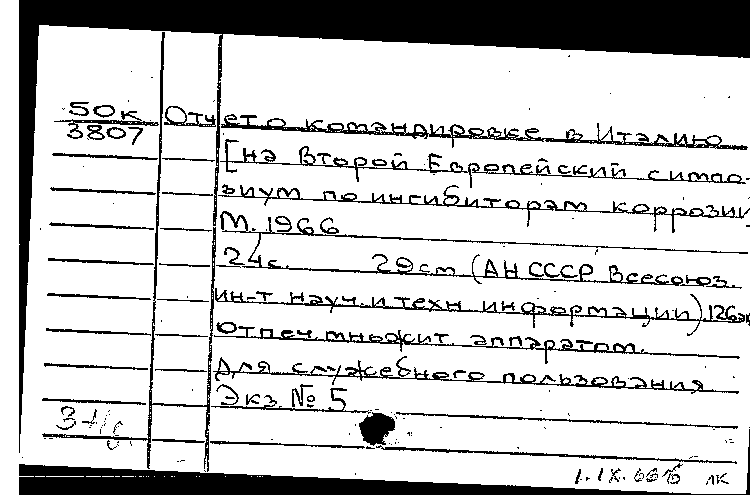 50к Отчет о командировке в Италию
3807
[на Второй Европейский симпо-
зиум по ингибиторам коррозии
М. 1966
24с. 29см (АН СССР Всесоюз.
ин-т науч. и техн информации) 126эк
Отпеч. множит. аппаратом.
Для служебного пользования
Экз. № 5
1.IX.66г лк